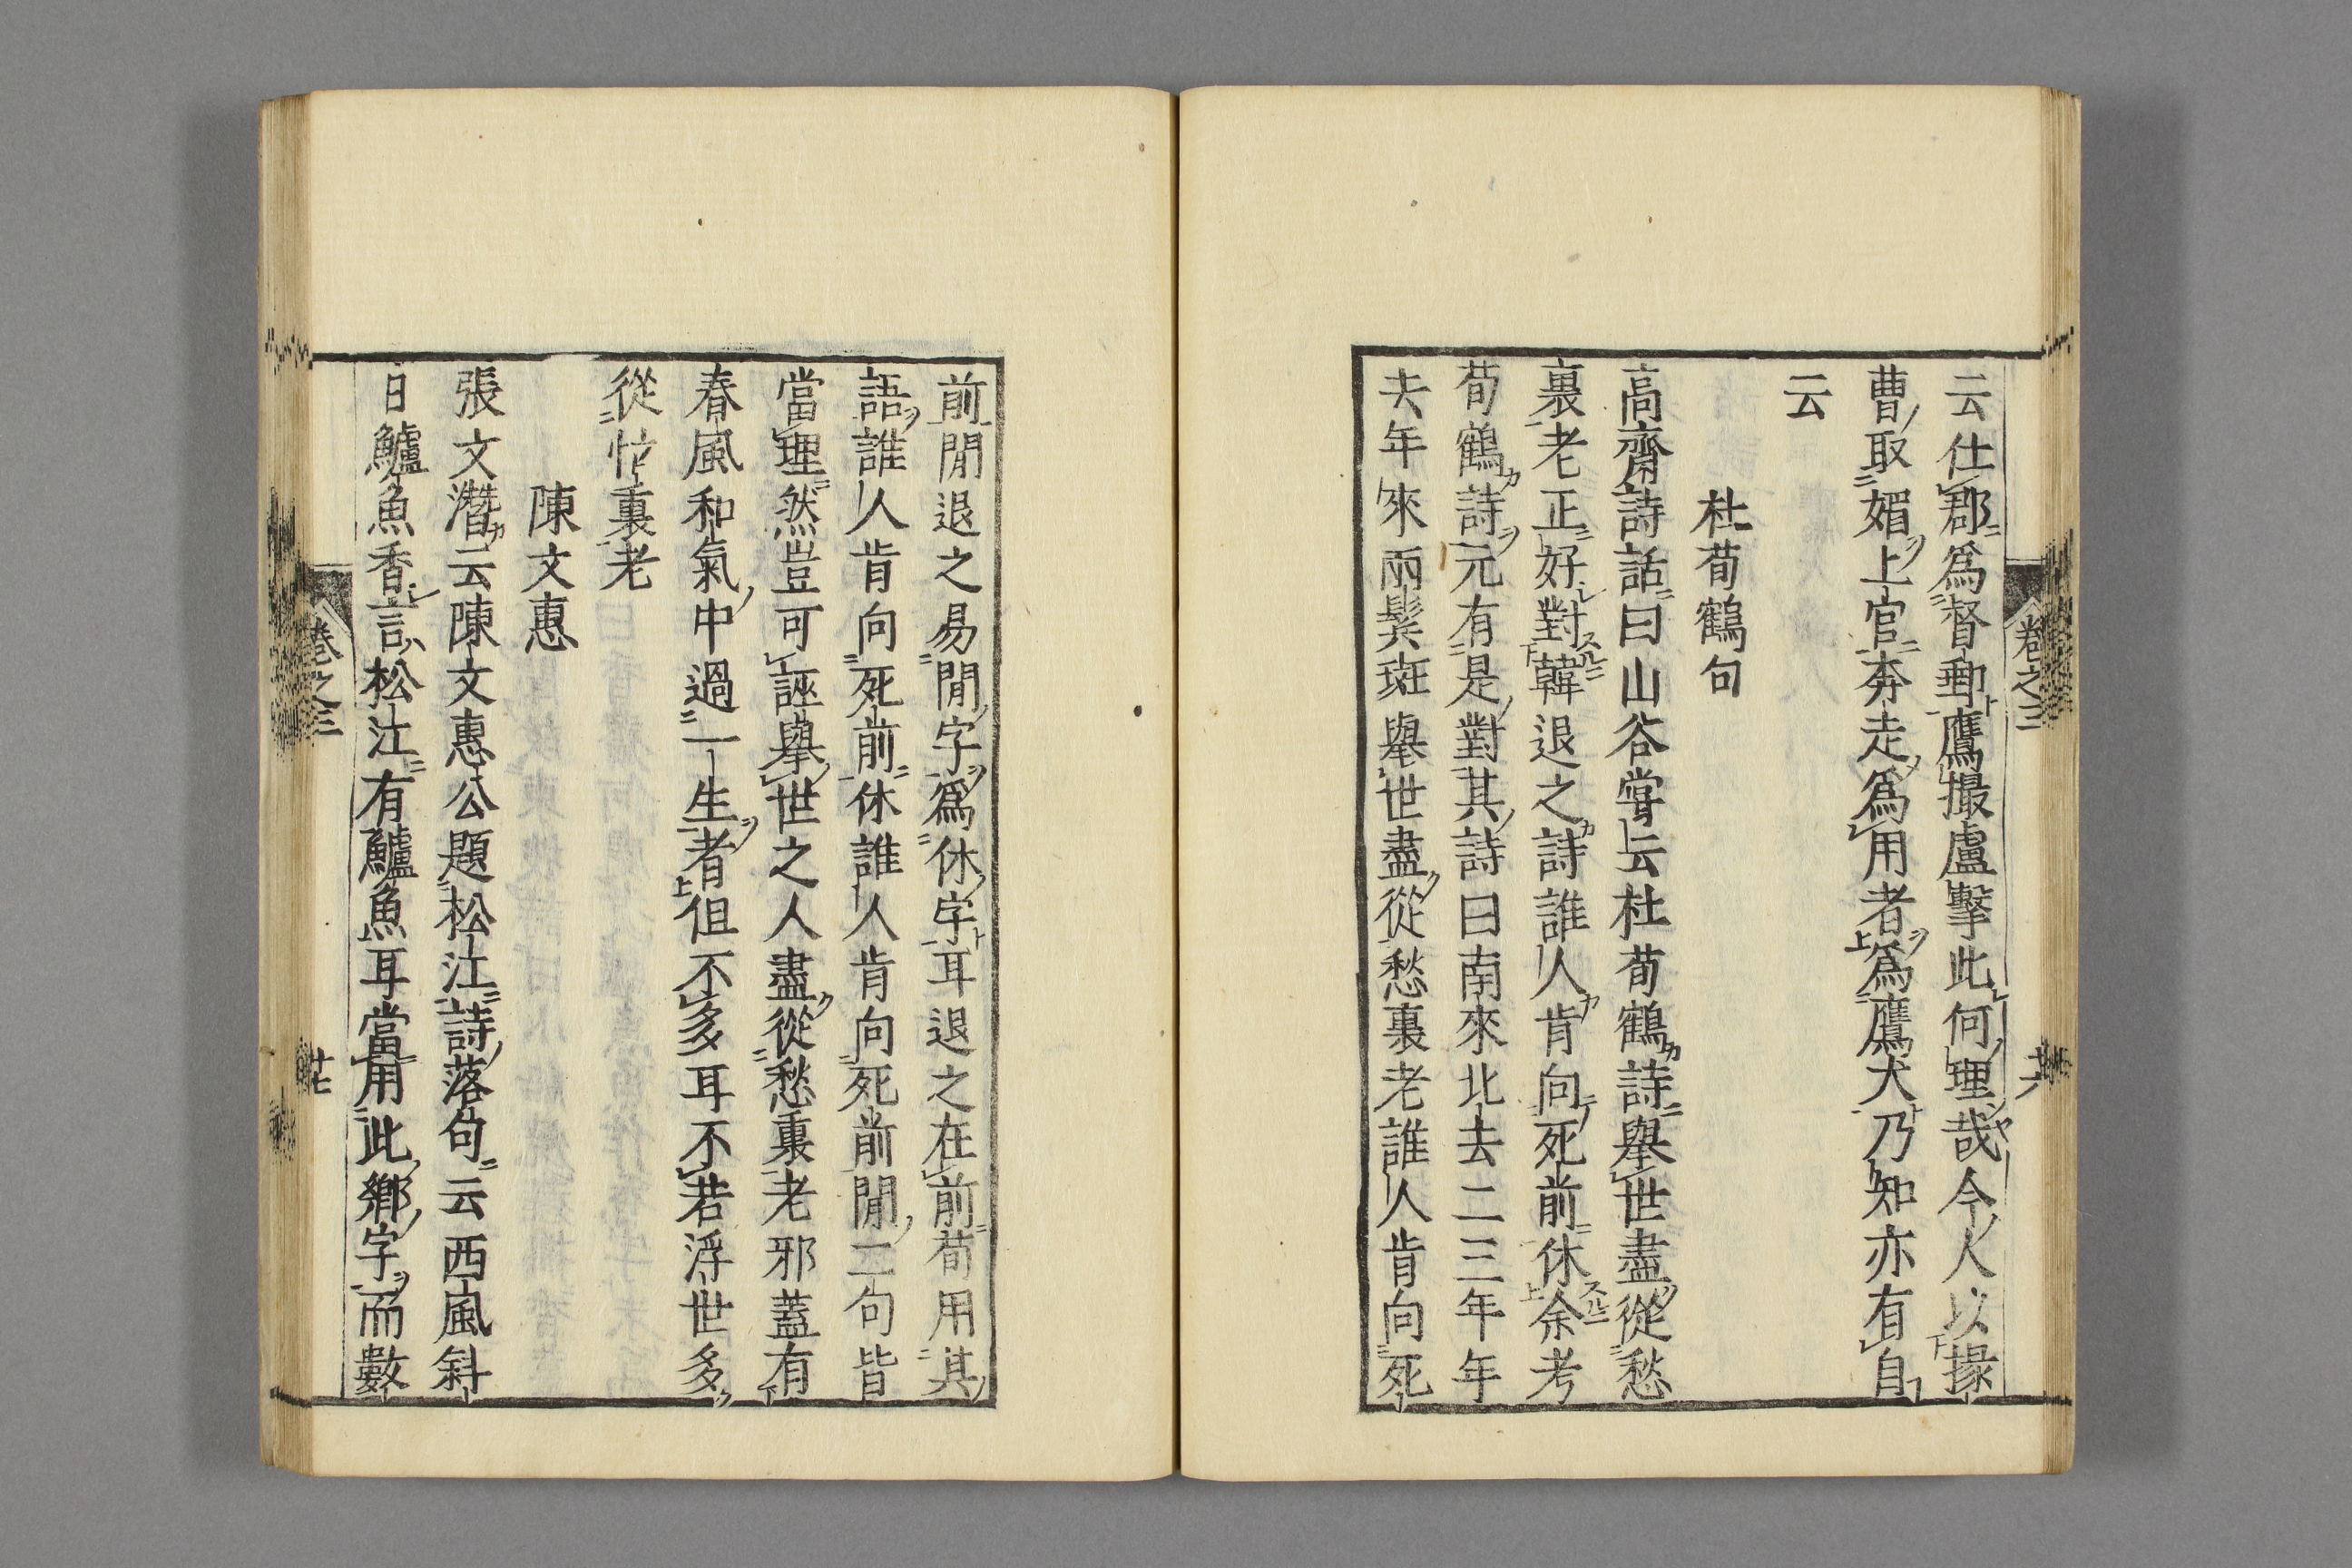 云仕郡爲督郵鷹撮盧擊此何理哉今人以掾
曹取媚上官奔走爲用者爲鷹犬乃知亦有自
云
杜荀鶴句
高齋詩話曰山谷嘗云杜荀鶴詩舉世盡從愁
裏老正好對韓退之詩誰人肯向死前休余考
荀鶴詩元有是對其詩曰南來北去二三年年
去年來兩鬂斑舉世盡從愁裏老誰人肯向死
卷之三
廿六
前閒退之易閒字爲休字耳退之在前荀用其
語誰人肯向死前休誰人肯向死前閒二句皆
當理然豈可誣舉世之人盡從愁裏老邪蓋有
春風和氣中過一生者但不多耳不若浮世多
從忙裏老
陳文惠
張文潛云陳文惠公題松江詩落句云西風斜
日鱸魚香言松江有鱸魚耳當用此鄉字而數
卷之三
廿七